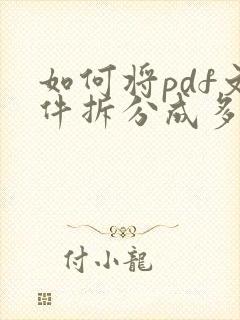 如何将pdf文
件拆分成多
付小龍